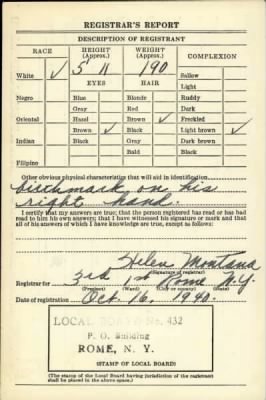 REGISTRAR'S REPORT
DESCRIPTION OF REGISTRANT
RACE HEIGHT (Approx.) WEIGHT (Approx.) COMPLEXION
White ✓ 5 11 190 Sallow
EYES HAIR Light
Negro Blue Blonde Ruddy
Gray Red Dark
Oriental Hazel Brown ✓ Freckled
Brown ✓ Black Light brown ✓
Indian Black Gray Dark brown
Bald Black
Filipino
Other obvious physical characteristics that will aid in identification
birthmark on his
right hand.
I certify that my answers are true; that the person registered has read or has had
read to him his own answers; that I have witnessed his signature or mark and that
all of his answers of which I have knowledge are true, except as follows:
Helen Montana
(Signature of registrar)
Registrar for 3rd 1st Rome N.Y.
(Precinct) (Ward) (City or county) (State)
Date of registration Oct. 16, 1940.
LOCAL BOARD No. 432
P. O. Building
ROME, N. Y.
(STAMP OF LOCAL BOARD)
(The stamp of the Local Board having jurisdiction of the registrant
shall be placed in the above space.)